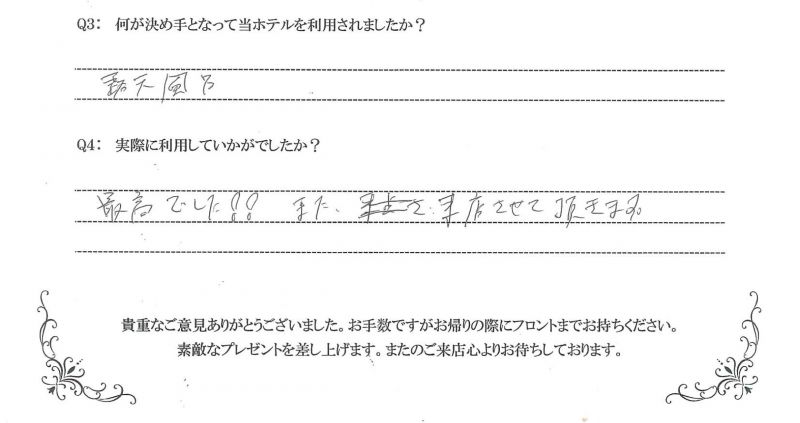 Q3: 何が決め手となって当ホテルを利用されましたか?
露天風呂
Q4: 実際に利用していかがでしたか?
最高でした!! また、来店させて頂きます。
貴重なご意見ありがとうございました。お手数ですがお帰りの際にフロントまでお持ちください。
素敵なプレゼントを差し上げます。またのご来店心よりお待ちしております。